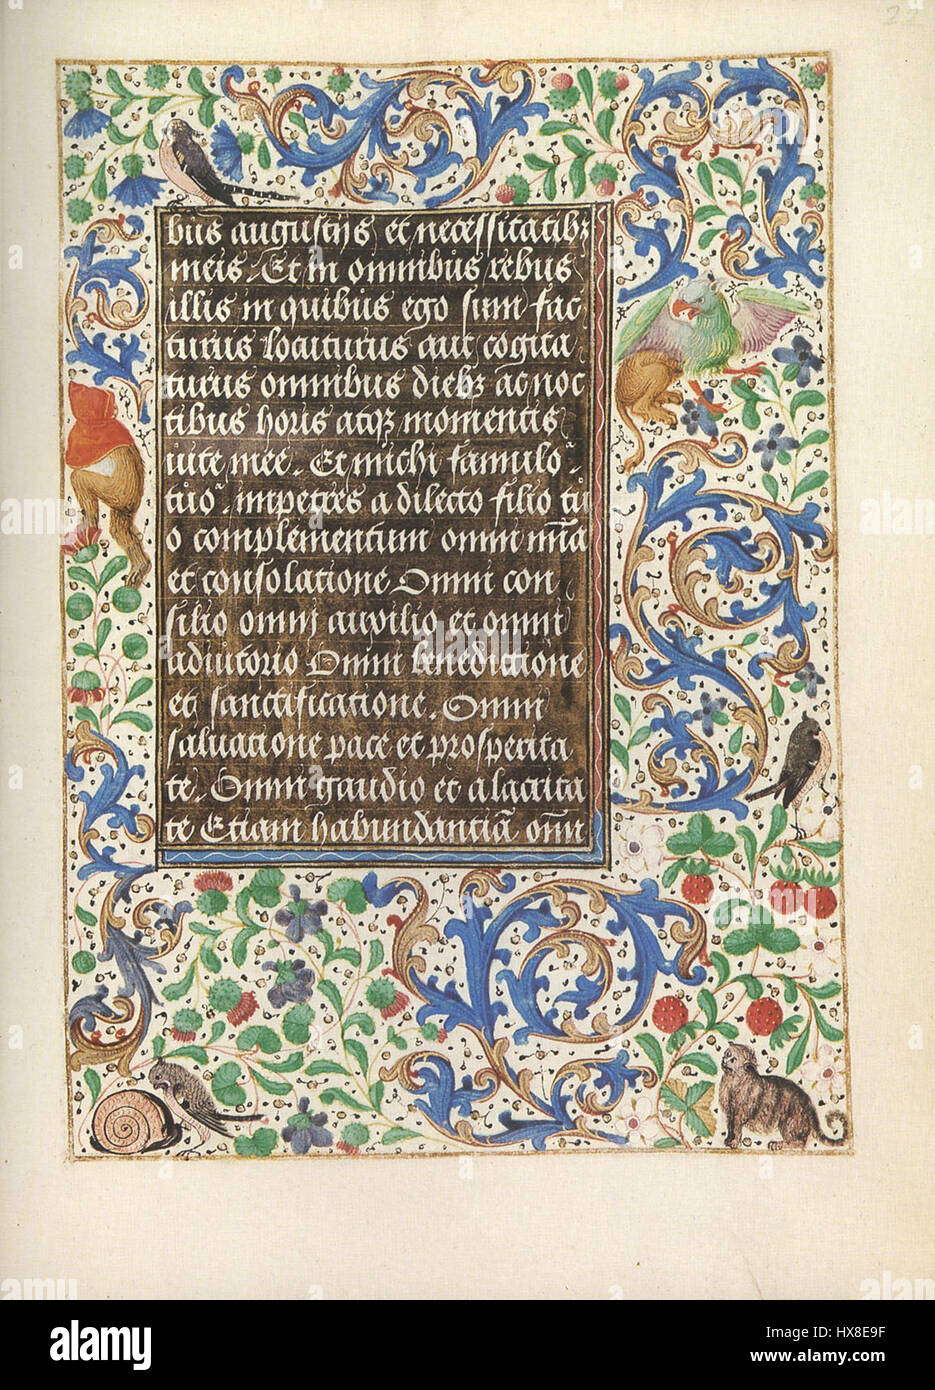 22
bus augustijs et necessitatibꝫ
meis. Et in omnibus rebus
illis in quibus ego sum fac
turus locuturus aut cogita
turus omnibus diebꝫ ac noc
tibus horis atqꝫ momentis
uite mee. Et michi famulo
tuo. impetres a dilecto filio tu
o complementum omni mīa
et consolatione Omni con
silio omni auxilio et omni
adiutorio Omni benedictione
et sanctificatione. Omni
saluatione pace et prosperita
te. Omni gaudio et alacrita
te Etiam habundantiā omni
alamy
Image ID: HX8E9F
www.alamy.com